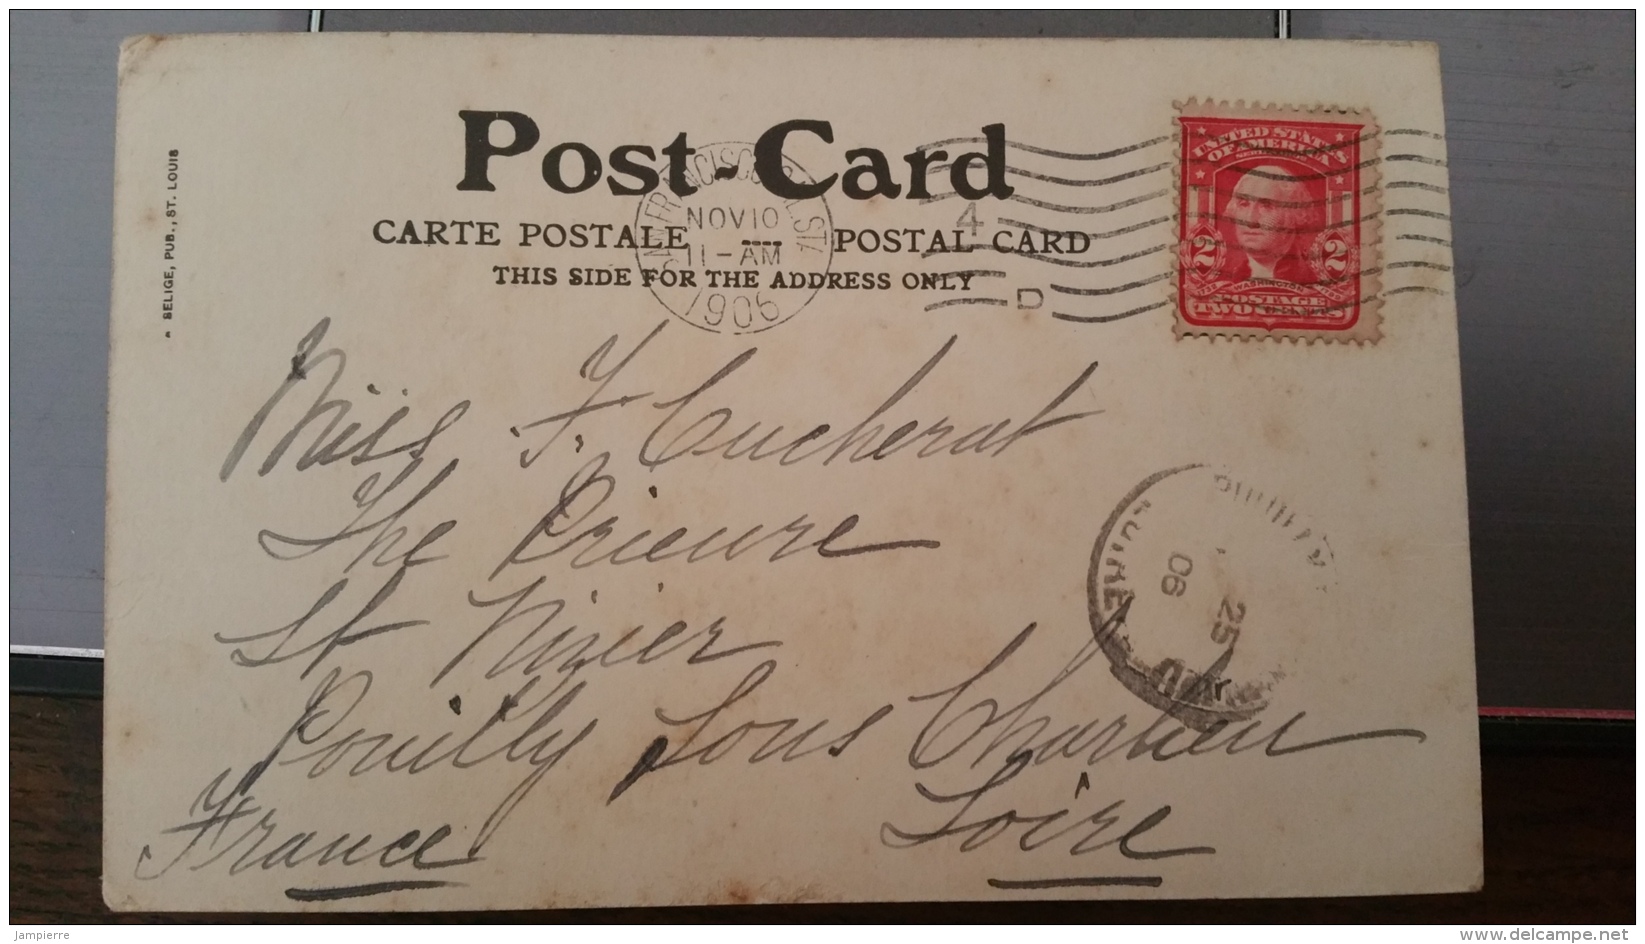 Post-Card
CARTE POSTALE POSTAL CARD
THIS SIDE FOR THE ADDRESS ONLY
SELIGE, PUB., ST. LOUIS
SAN FRANCISCO CAL. STA
NOV 10
11-AM
1906
4
D
UNITED STATES
OF AMERICA
2 2
1732 WASHINGTON 1799
POSTAGE
TWO CENTS
Miss F. Cucherat
The Prieure
St Nizier
Pouilly Sous Charlieu
Loire
France
25
06
LOIRE
Jampierre
www.delcampe.net